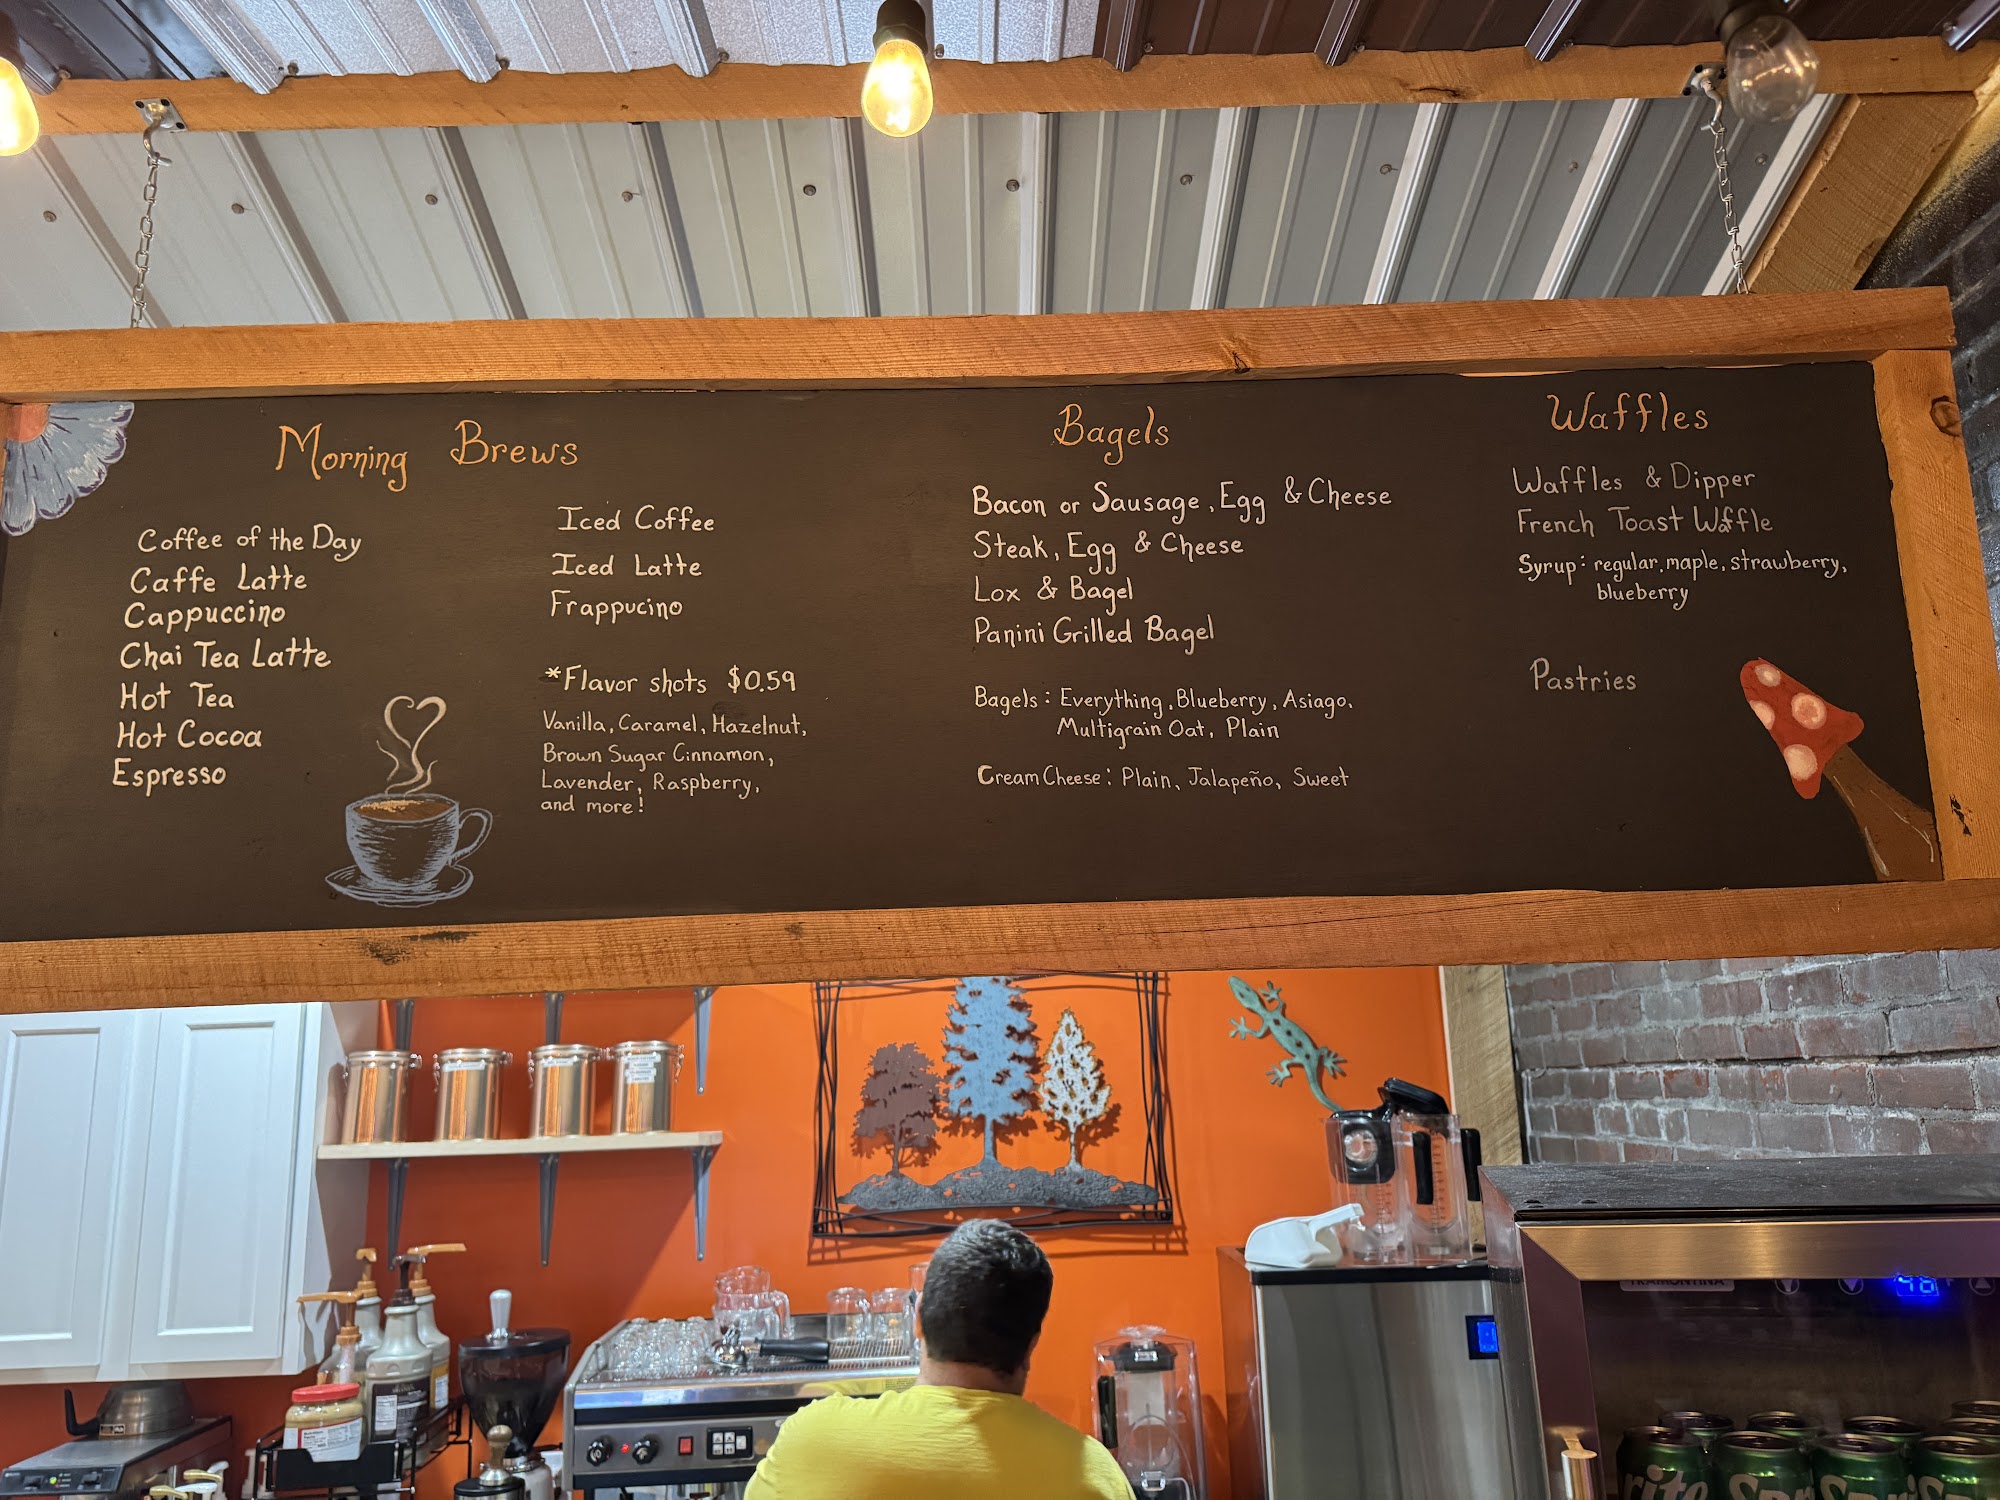 Morning Brews
Coffee of the Day
Caffe Latte
Cappuccino
Chai Tea Latte
Hot Tea
Hot Cocoa
Espresso
Iced Coffee
Iced Latte
Frappucino
*Flavor shots $0.59
Vanilla, Caramel, Hazelnut,
Brown Sugar Cinnamon,
Lavender, Raspberry,
and more!
Bagels
Bacon or Sausage, Egg & Cheese
Steak, Egg & Cheese
Lox & Bagel
Panini Grilled Bagel
Bagels: Everything, Blueberry, Asiago,
Multigrain Oat, Plain
Cream Cheese: Plain, Jalapeño, Sweet
Waffles
Waffles & Dipper
French Toast Waffle
Syrup: regular, maple, strawberry,
blueberry
Pastries
TRAMONTINA